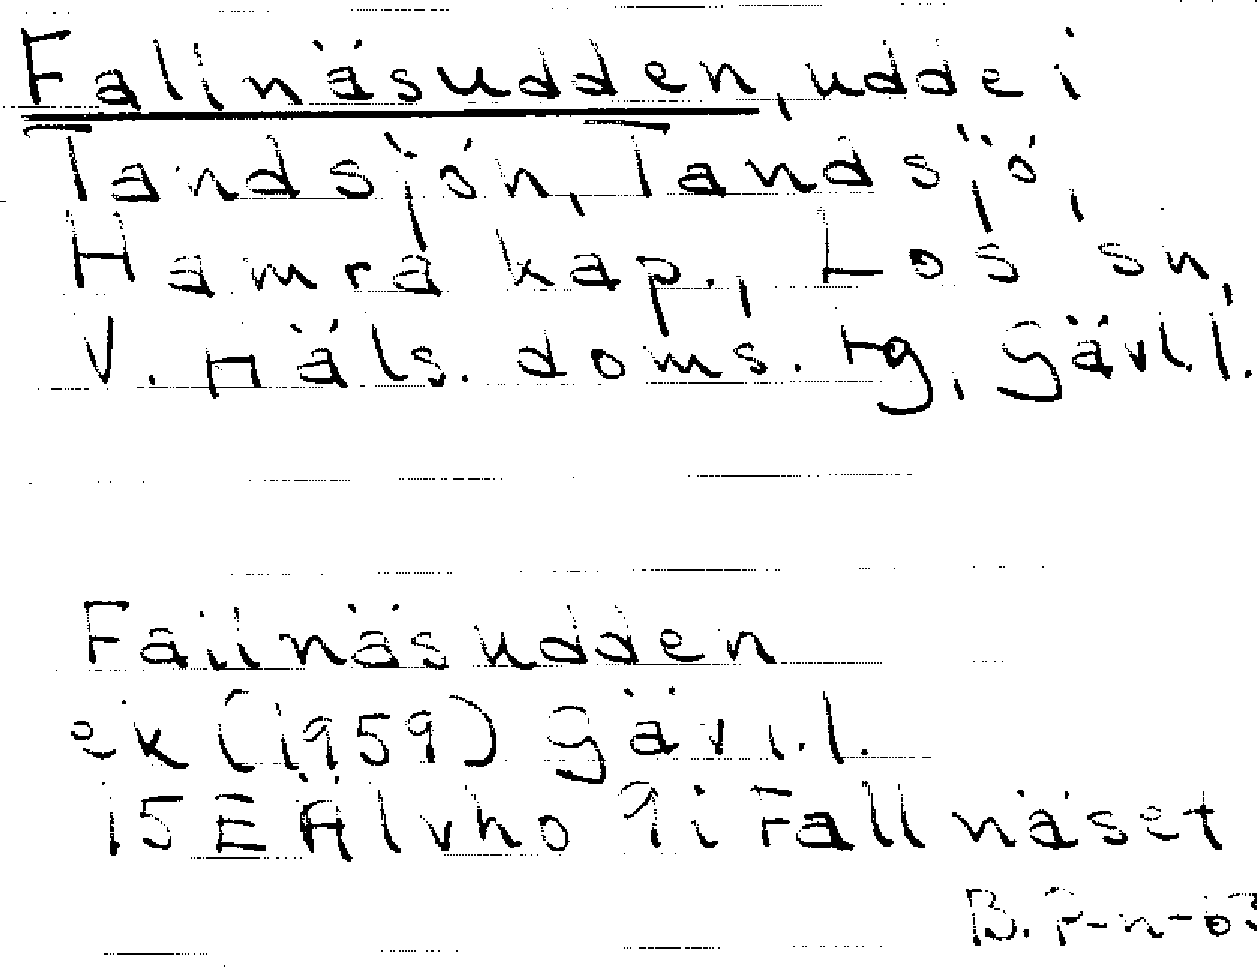 Fallnäsudden, udde i
Tandsjön, Tandsjö,
Hamra kap., Los sn,
V. Häls. doms. tg, Gävl.l.
Fallnäsudden
ek (1959) Gävl.l.
15E Älvho 9i Fallnäset
B. P-n-63